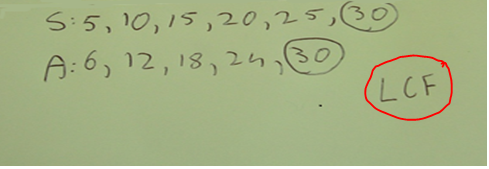 S: 5, 10, 15, 20, 25, 30
A: 6, 12, 18, 24, 30
LCF